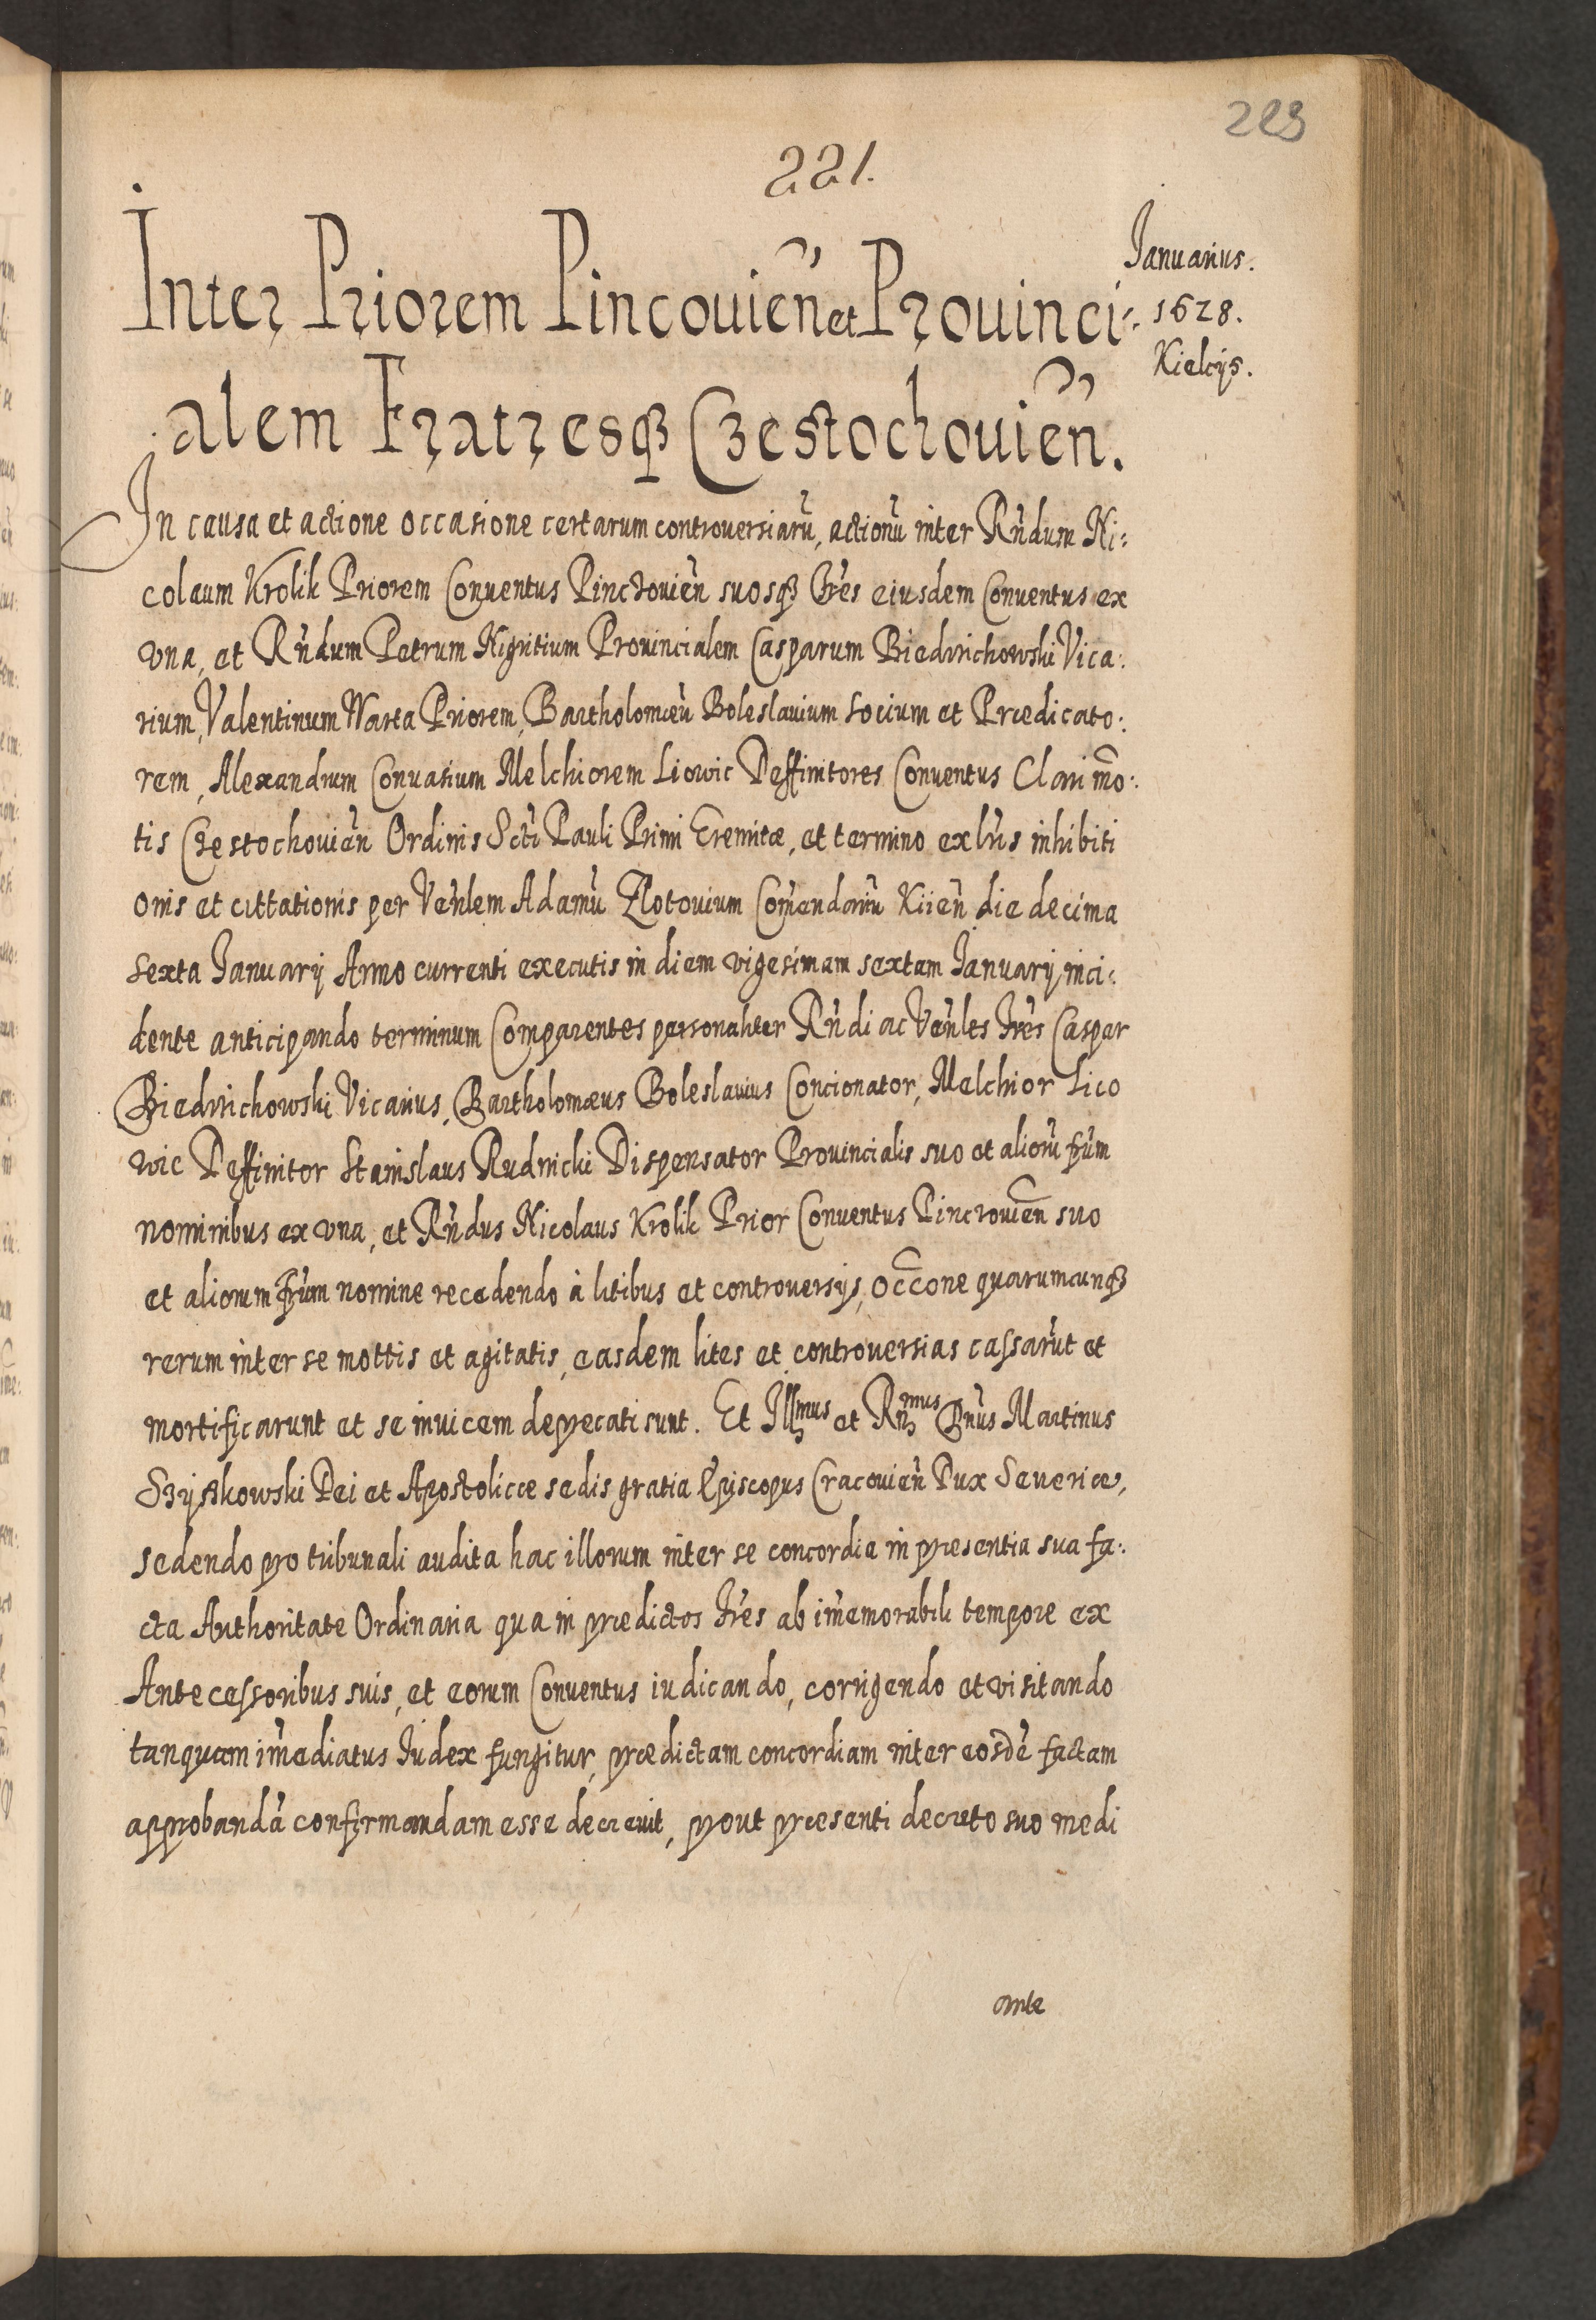 223
221.
Inter Priorem Pincouień et Prouinci:
Januarius.
1628.
Kielcijs.
alem Fratresq3 Czestochouień.
In causa et actione occasione certarum controuersiarũ, actionũ inter Rńdum Ni:
colaum Krolik Priorem Conuentus Pinczouień suosq3 Frẽs eiusdem Conuentus ex
vna, et Rńdum Petrum Nigritium Prouincialem Casparum Biedrichowski Vica:
rium, Valentinum Warta Priorem, Bartholomæũ Boleslauium socium et Prædicato:
rem, Alexandrum Conuasium Melchiorem Liowic Deffinitores Conuentus Clari mõ:
tis Czestochouień Ordinis Scti Pauli Primi Eremitæ, et termino ex lr̃is inhibiti
onis et cittationis per Veńlem Adamũ Zlotouium Com̃endariũ Kiień die decima
sexta Januarij Anno currenti executis in diem vigesimam sextam Januarij inci:
dente anticipando terminum Comparentes personaliter Rńdi ac Veńles Frẽs Caspar
Biedrichowski Vicarius, Bartholomæus Boleslauius Concionator, Melchior Lico
wic Deffinitor Stanislaus Rudnicki Dispensator Prouincialis suo et aliorũ frũm
nominibus ex vna, et Rńdus Nicolaus Krolik Prior Conuentus Pinczouień suo
et aliorum frũm nomine recedendo à litibus et controuersijs, occ̃one quarumcunq3
rerum inter se mottis et agitatis, easdem lites et controuersias cassarũt et
mortificarunt et se inuicem deprecati sunt. Et Illmus et Rńmus Dńus Martinus
Szyszkowski Dei et Apostolicæ sedis gratia Episcopus Cracouień Dux Seueriæ,
sedendo pro tribunali audita hac illorum inter se concordia in presentia sua fa:
cta Authoritate Ordinaria qua in prædictos Frẽs ab im̃emorabili tempore ex
Antecessoribus suis, et eorum Conuentus iudicando, corrigendo et visitando
tanquam im̃ediatus Iudex fungitur, prædictam concordiam inter eosdẽ factam
approbandã confirmandam esse decreuit, prout præsenti decreto suo medi
ante